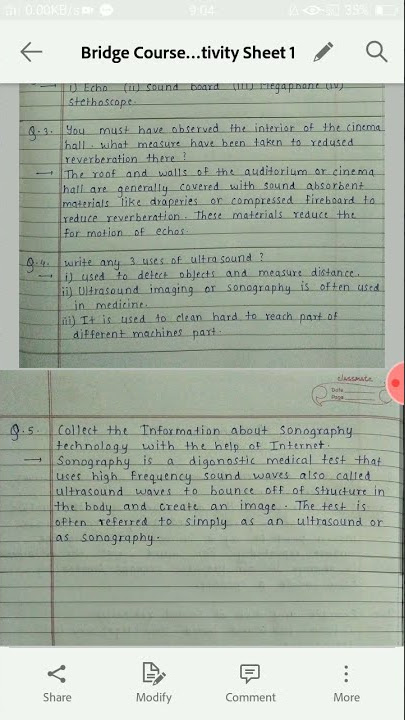 0.00KB/s
9:04
35%
Bridge Course...tivity Sheet 1
→ i) Echo (ii) Sound board (iii) Megaphone (iv)
stethoscope.
Q.3. You must have observed the interior of the cinema
hall. what measure have been taken to redused
reverberation there?
→ The roof and walls of the auditorium or cinema
hall are generally covered with sound absorbent
materials like draperies or compressed fireboard to
reduce reverberation. These materials reduce the
for motion of echos.
Q.4. write any 3 uses of ultra sound?
→ i) used to detect objects and measure distance.
ii) Ultrasound imaging or sonography is often used
in medicine.
iii) It is used to clean hard to reach part of
different machines part.
classmate
Date
Page
Q.5. Collect the Information about Sonography
technology with the help of Internet.
→ Sonography is a digonostic medical test that
uses high frequency sound waves also called
ultrasound waves to bounce off of structure in
the body and create an image. The test is
often referred to simply as an ultrasound or
as sonography.
Share
Modify
Comment
More